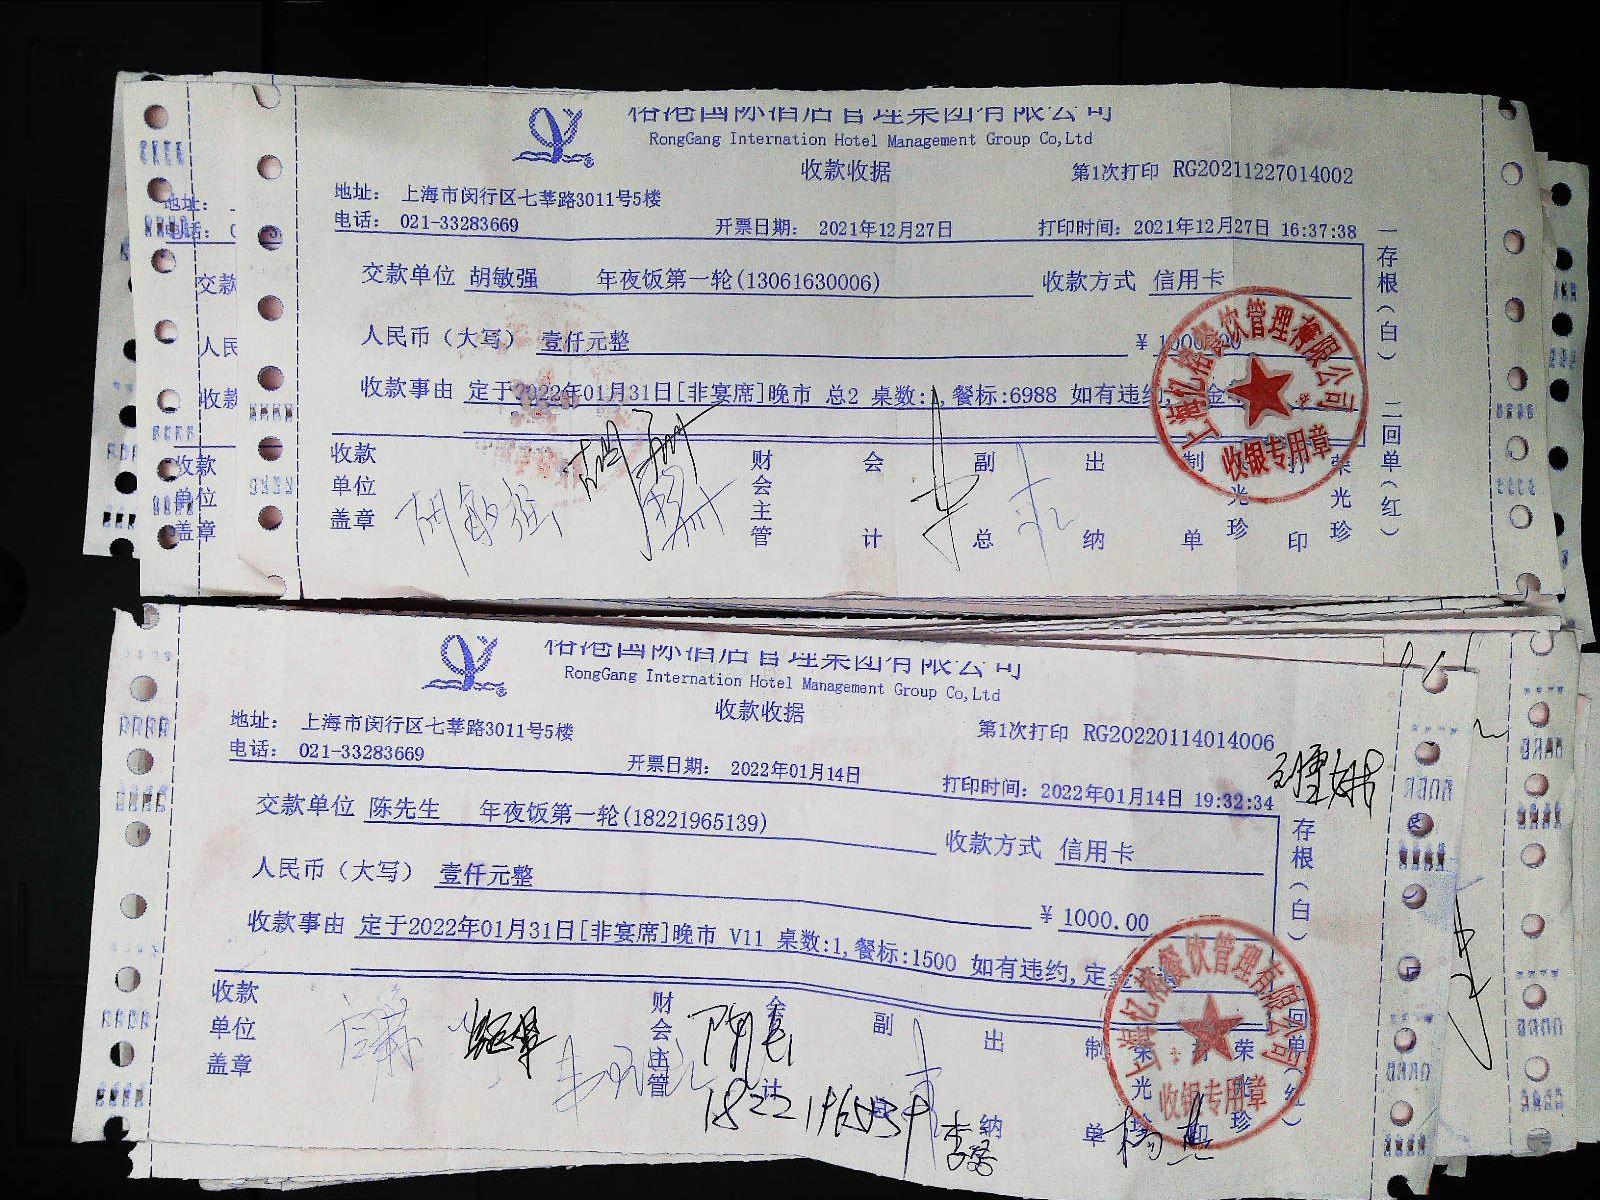 榕港国际酒店管理集团有限公司
RongGang Internation Hotel Management Group Co,Ltd
收款收据
第1次打印 RG20211227014002
地址： 上海市闵行区七莘路3011号5楼
电话： 021-33283669 开票日期： 2021年12月27日 打印时间：2021年12月27日 16:37:38
交款单位 胡敏强 年夜饭第一轮(13061630006) 收款方式 信用卡
人民币（大写） 壹仟元整 ¥ 1000
收款事由 定于2022年01月31日[非宴席]晚市 总2 桌数:1,餐标:6988 如有违约, 金
收款单位盖章 胡敏强 财会主管 会计 副总 出纳 制单 光珍 打印 荣光珍
一存根(白) 二回单(红)
餐饮管理有限公司
收银专用章
地址：
电话：
交款
人民
收款
收款单位盖章
榕港国际酒店管理集团有限公司
RongGang Internation Hotel Management Group Co,Ltd
收款收据
第1次打印 RG20220114014006
地址： 上海市闵行区七莘路3011号5楼
电话： 021-33283669 开票日期： 2022年01月14日 打印时间：2022年01月14日 19:32:34
交款单位 陈先生 年夜饭第一轮(18221965139) 收款方式 信用卡
人民币（大写） 壹仟元整 ¥ 1000.00
收款事由 定于2022年01月31日[非宴席]晚市 V11 桌数:1,餐标:1500 如有违约,定金
收款单位盖章 财会主管 会计 副 出纳 制单 荣光珍 打印 荣光珍
存根(白) 回单(红)
餐饮管理有限公司
收银专用章